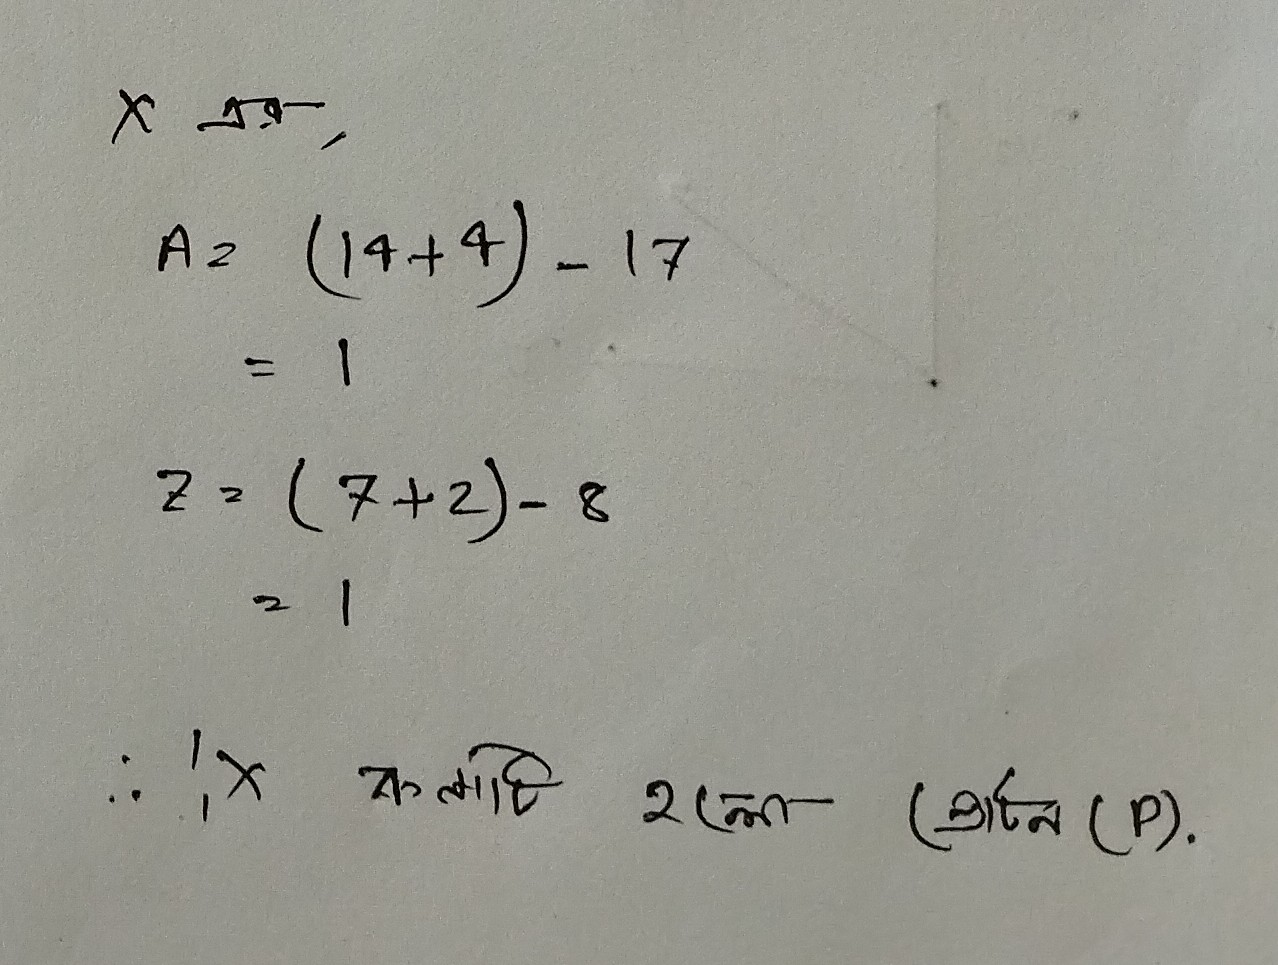 X এর,
A = (14+4) - 17
= 1
Z = (7+2) - 8
= 1
∴ ¹₁X কণাটি হলো প্রোটন (P).